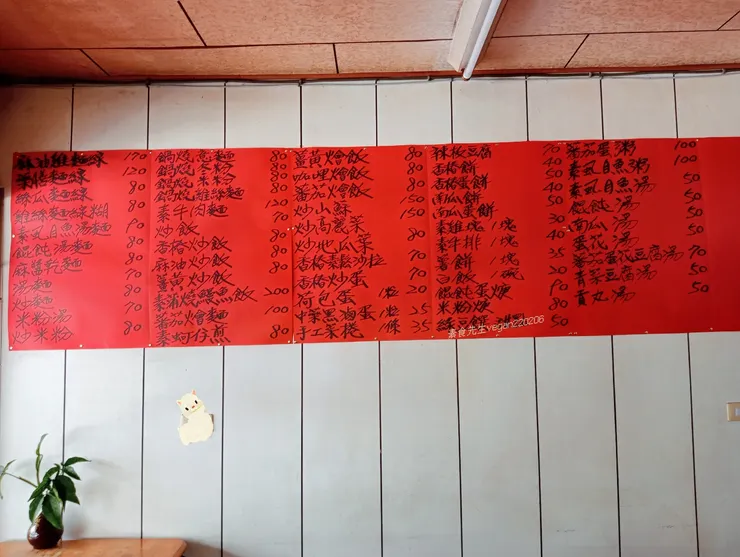 麻油雞麵線 170
柴燒麵線 120
絲瓜麵線 80
麵線糊
素虱目魚湯麵 90
餛飩湯麵 80
麻醬乾麵
湯麵
炒麵 80
米粉湯 80
炒米粉 80
鍋燒意麵 80
鍋燒冬粉 80
鍋燒米粉 80
鍋燒雞絲麵 80
素牛肉麵 120
炒飯 70
香椿炒飯 80
麻油炒飯 80
薑黃炒飯 80
素蒲燒鰻魚飯 200
番茄燴麵 100
素蚵仔煎 80
薑黃燴飯 80
咖哩燴飯 80
番茄燴飯 80
炒山蘇 150
炒高麗菜 150
炒地瓜葉
香椿素鬆沙拉
香椿炒蛋
荷包蛋 1粒 20
中藥黑滷蛋 1粒 25
手工菜捲 1條 35
辣板豆腐 70
香椿餅 40
香椿蛋餅 50
南瓜餅 40
南瓜蛋餅 50
素雞塊 1塊 30
素牛排 1塊 40
薯餅 1塊 35
白飯 1碗 20
餛飩蛋
米粉
50
番茄蛋粥 100
素虱目魚粥 100
素虱目魚湯 50
餛飩湯 50
南瓜湯
蛋花湯 50
番茄蛋花豆腐湯 70
青菜豆腐湯 50
貢丸湯 50
素食先生vegan220206